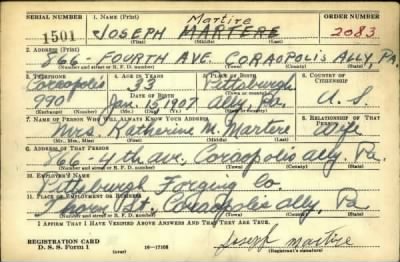 SERIAL NUMBER 1. NAME (Print) ORDER NUMBER
Martire
1501 JOSEPH MARTERE 2083
(First) (Middle) (Last)
2. ADDRESS (Print)
866 FOURTH AVE. CORAOPOLIS ALLY, PA.
(Number and street or R. F. D. number) (Town) (County) (State)
3. TELEPHONE 4. AGE IN YEARS 5. PLACE OF BIRTH 6. COUNTRY OF CITIZENSHIP
Coraopolis 33 Pittsburgh
DATE OF BIRTH
990 Jan. 15 1907 Ally, Pa. U. S.
(Exchange) (Number) (Mo.) (Day) (Yr.) (Town or county) (State or country)
7. NAME OF PERSON WHO WILL ALWAYS KNOW YOUR ADDRESS 8. RELATIONSHIP OF THAT PERSON
Mrs. Katherine M. Martere Wife
(Mr., Mrs., Miss) (First) (Middle) (Last)
9. ADDRESS OF THAT PERSON
866-4th ave. Coraopolis ally. Pa.
(Number and street or R. F. D. number) (Town) (County) (State)
10. EMPLOYER'S NAME
Pittsburgh Forging Co.
11. PLACE OF EMPLOYMENT OR BUSINESS
Thorn St. Coraopolis ally, Pa
(Number and street or R. F. D. number) (Town) (County) (State)
I AFFIRM THAT I HAVE VERIFIED ABOVE ANSWERS AND THAT THEY ARE TRUE.
REGISTRATION CARD
D. S. S. Form 1 (over) 16—17105 Joseph Martire
(Registrant's signature)